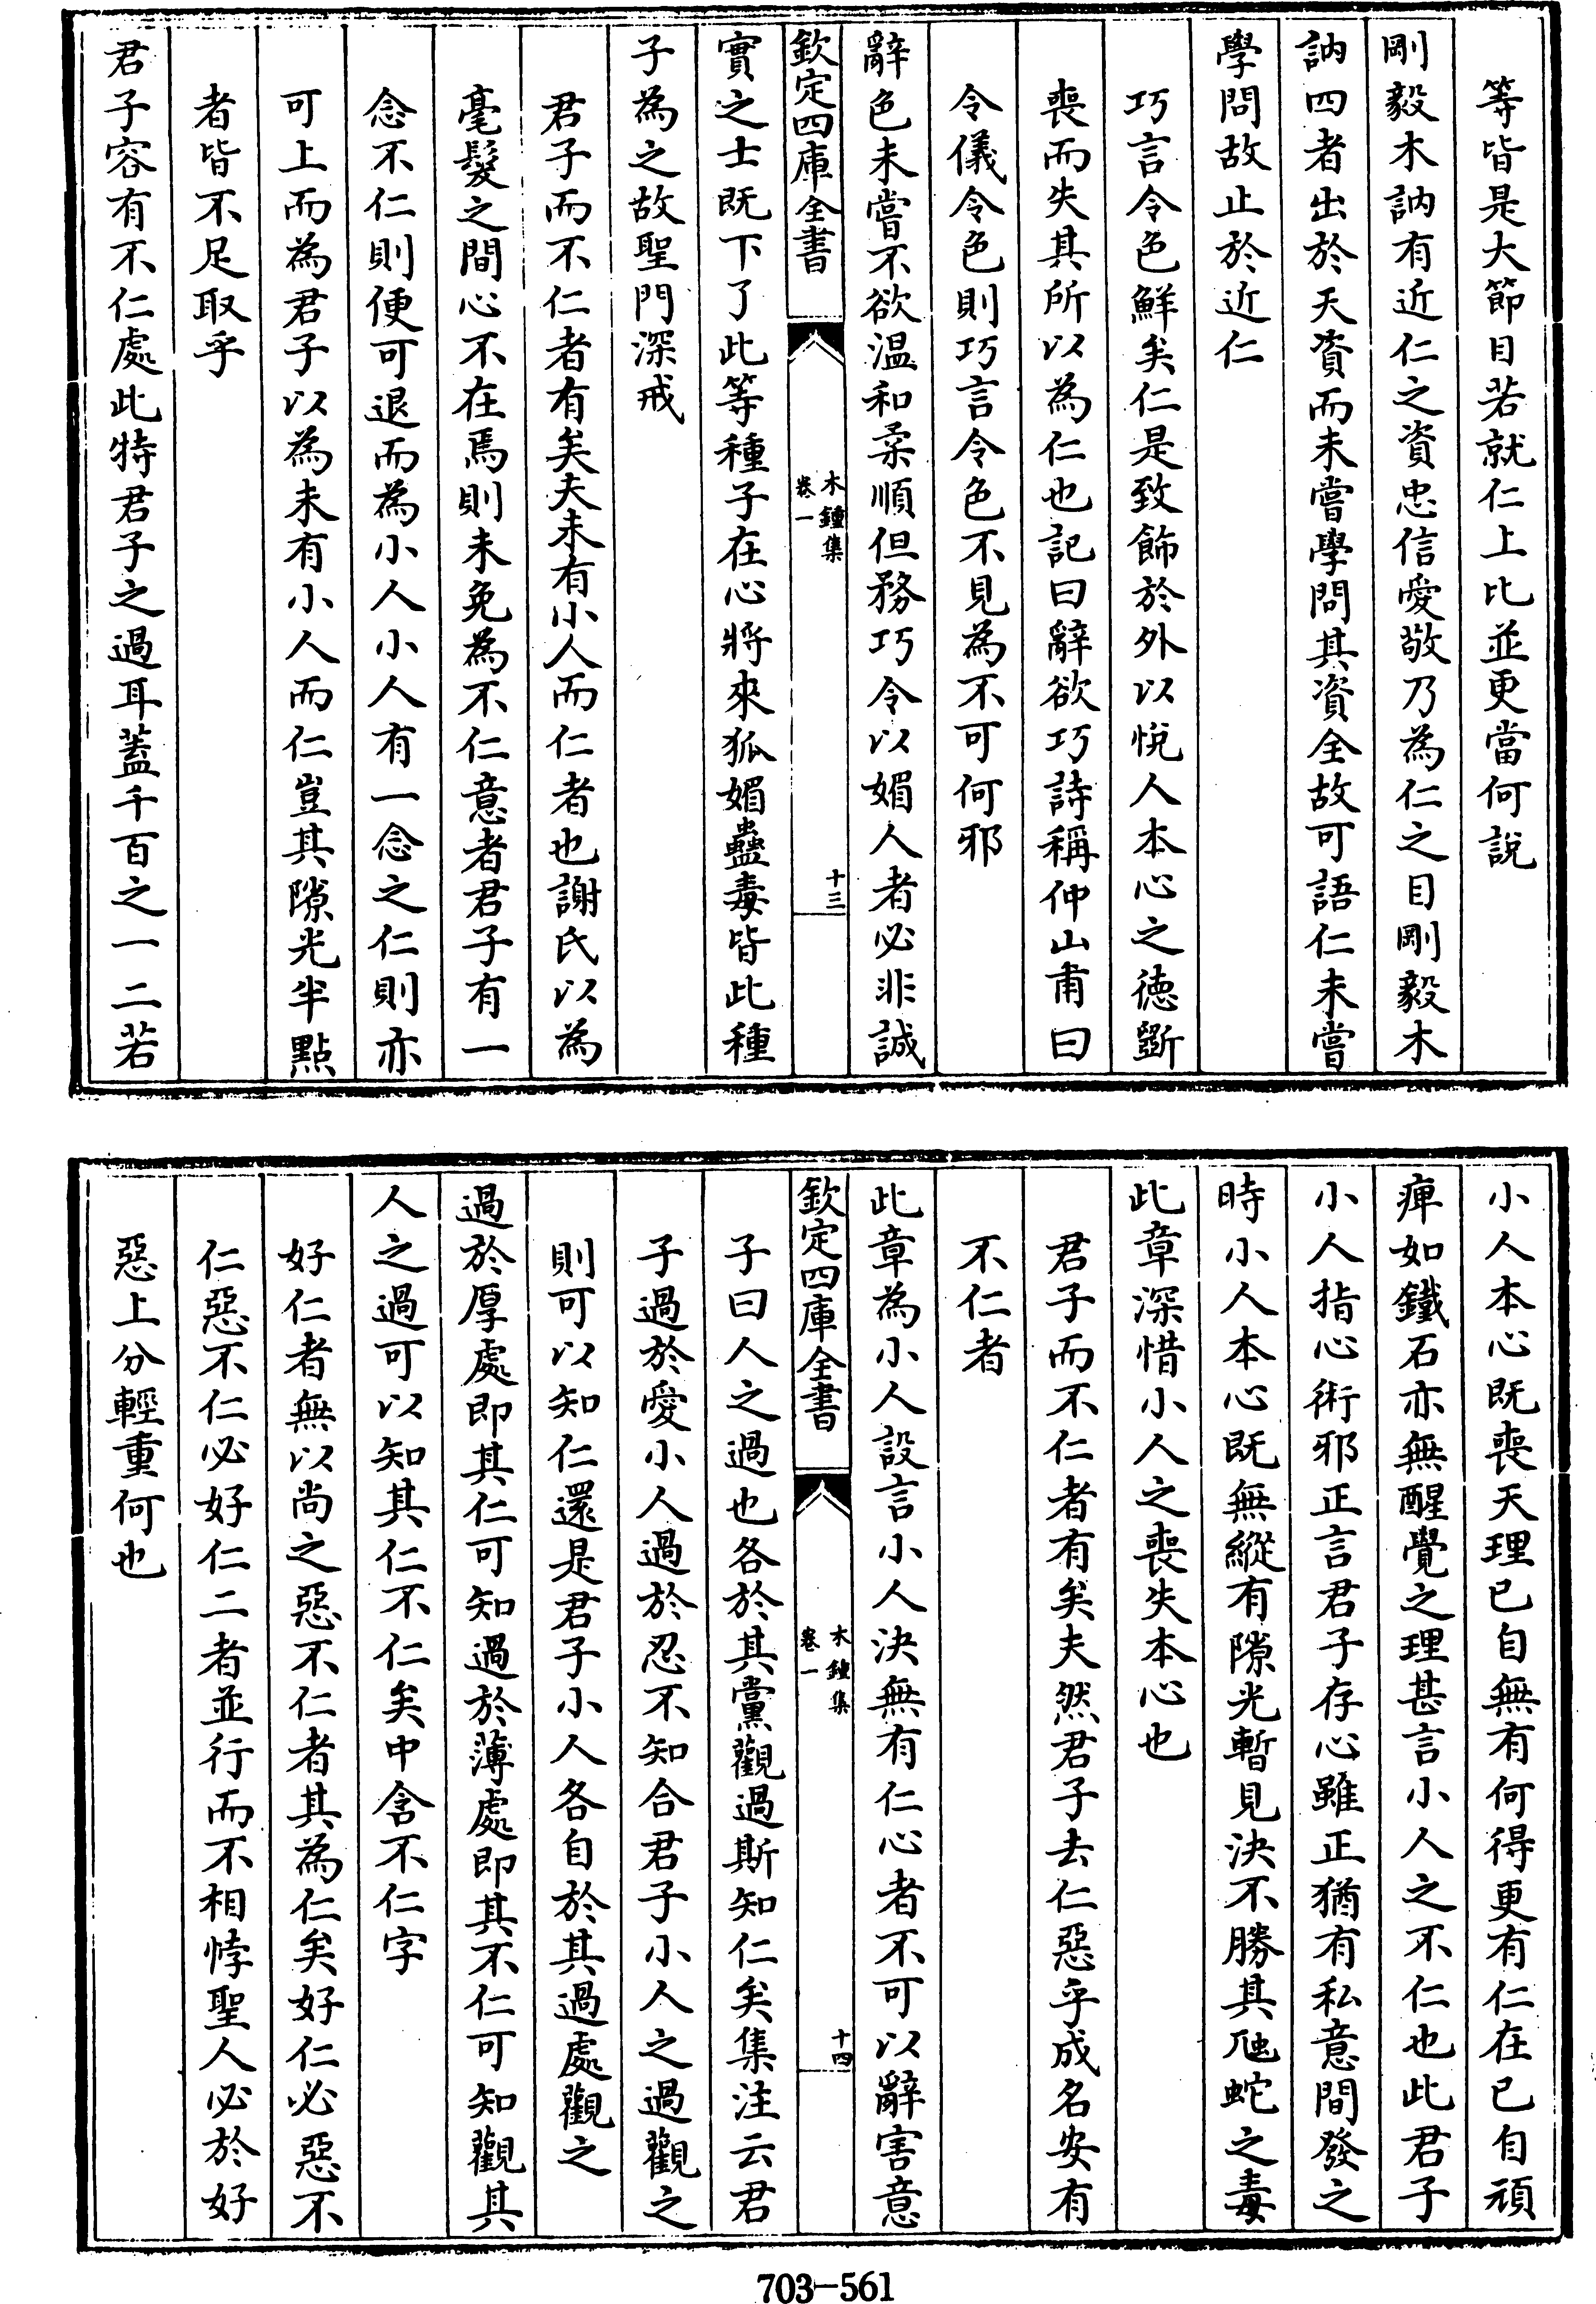 等皆是大節目若就仁上比並更當何說
剛毅木訥有近仁之資忠信愛敬乃為仁之目剛毅木
訥四者出於天資而未嘗學問其資全故可語仁未嘗
學問故止於近仁
巧言令色鮮矣仁是致飾於外以悅人本心之德斲
喪而失其所以為仁也記曰辭欲巧詩稱仲山甫曰
令儀令色則巧言令色不見為不可何邪
辭色未嘗不欲温和柔順但務巧令以媚人者必非誠
欽定四庫全書
木鍾集
卷一
十三
實之士既下了此等種子在心將來狐媚蠱毒皆此種
子為之故聖門深戒
君子而不仁者有矣夫未有小人而仁者也謝氏以為
毫髮之間心不在焉則未免為不仁意者君子有一
念不仁則便可退而為小人小人有一念之仁則亦
可上而為君子以為未有小人而仁豈其隙光半點
者皆不足取乎
君子容有不仁處此特君子之過耳蓋千百之一二若
小人本心既喪天理已自無有何得更有仁在已自頑
痺如鐵石亦無醒覺之理甚言小人之不仁也此君子
小人指心術邪正言君子存心雖正猶有私意間發之
時小人本心既無縱有隙光暫見決不勝其虺蛇之毒
此章深惜小人之喪失本心也
君子而不仁者有矣夫然君子去仁惡乎成名安有
不仁者
此章為小人設言小人決無有仁心者不可以辭害意
欽定四庫全書
木鍾集
卷一
十四
子曰人之過也各於其黨觀過斯知仁矣集注云君
子過於愛小人過於忍不知合君子小人之過觀之
則可以知仁還是君子小人各自於其過處觀之
過於厚處即其仁可知過於薄處即其不仁可知觀其
人之過可以知其仁不仁矣中含不仁字
好仁者無以尚之惡不仁者其為仁矣好仁必惡不
仁惡不仁必好仁二者並行而不相悖聖人必於好
惡上分輕重何也
703-561